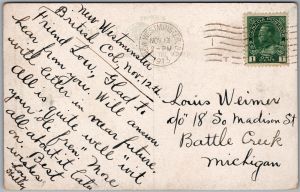 New Westminster
British Col, Nov 12th
Friend Lou, Glad to
hear from you. Will answer
with letter in near future
All is quite well with
you "de from" More
all about it later
Best
wishes
NEW WESTMINSTER, B.C.
NOV 13
PM
1913
1
Louis Weimer
c/o 18 S. Madison St
Battle Creek
Michigan